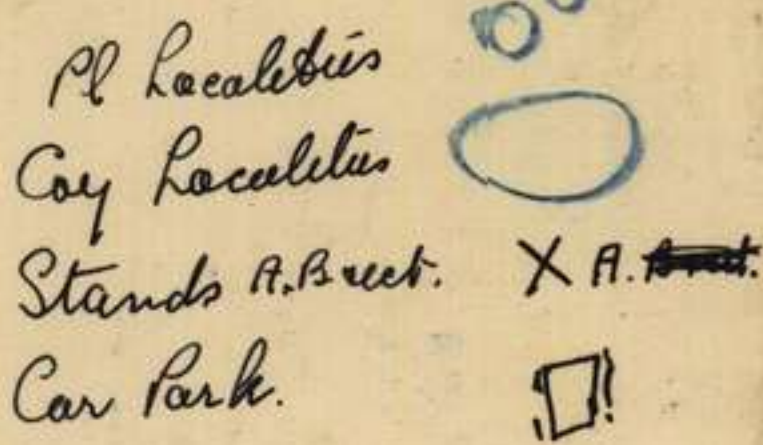 Pl Localities
Coy Localities
Stands A.B ect. X A.
Car Park.